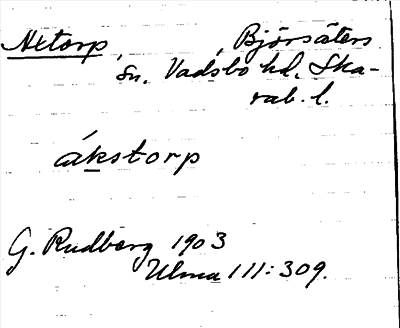 Björsäters
sn, Vadsbo hd. Ska-
rab. l.
ákstorp
G. Rudberg 1903
Ulma 111:309.